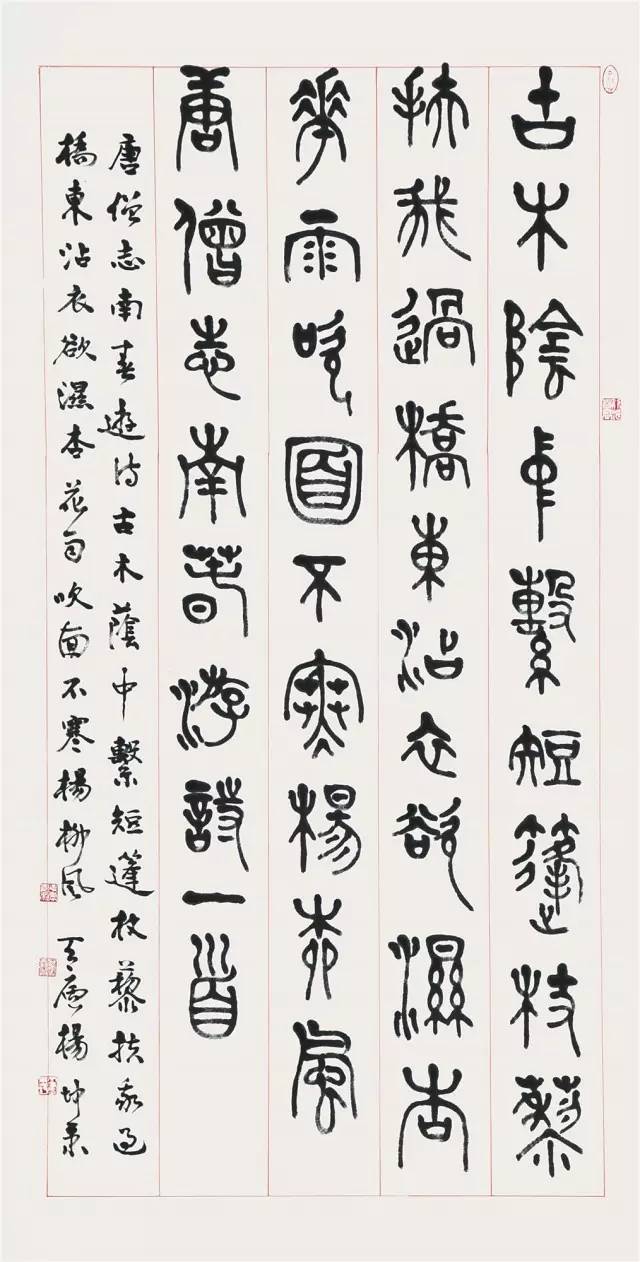 古木陰中繫短篷杖藜
扶我過橋東沾衣欲濕杏
花雨吹面不寒楊柳風
唐僧志南春游詩一首
唐僧志南春遊詩古木蔭中繫短篷杖藜扶我過
橋東沾衣欲濕杏花雨吹面不寒楊柳風 楊坤